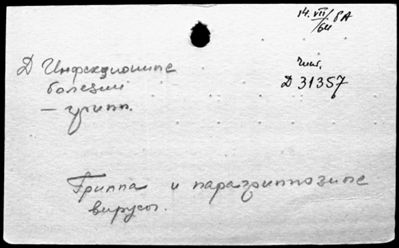 14.VII/8А
/64
Д Инфекционные
болезни
— грипп.
Чит.
Д 31357
Гриппа и парагриппозные
вирусы.